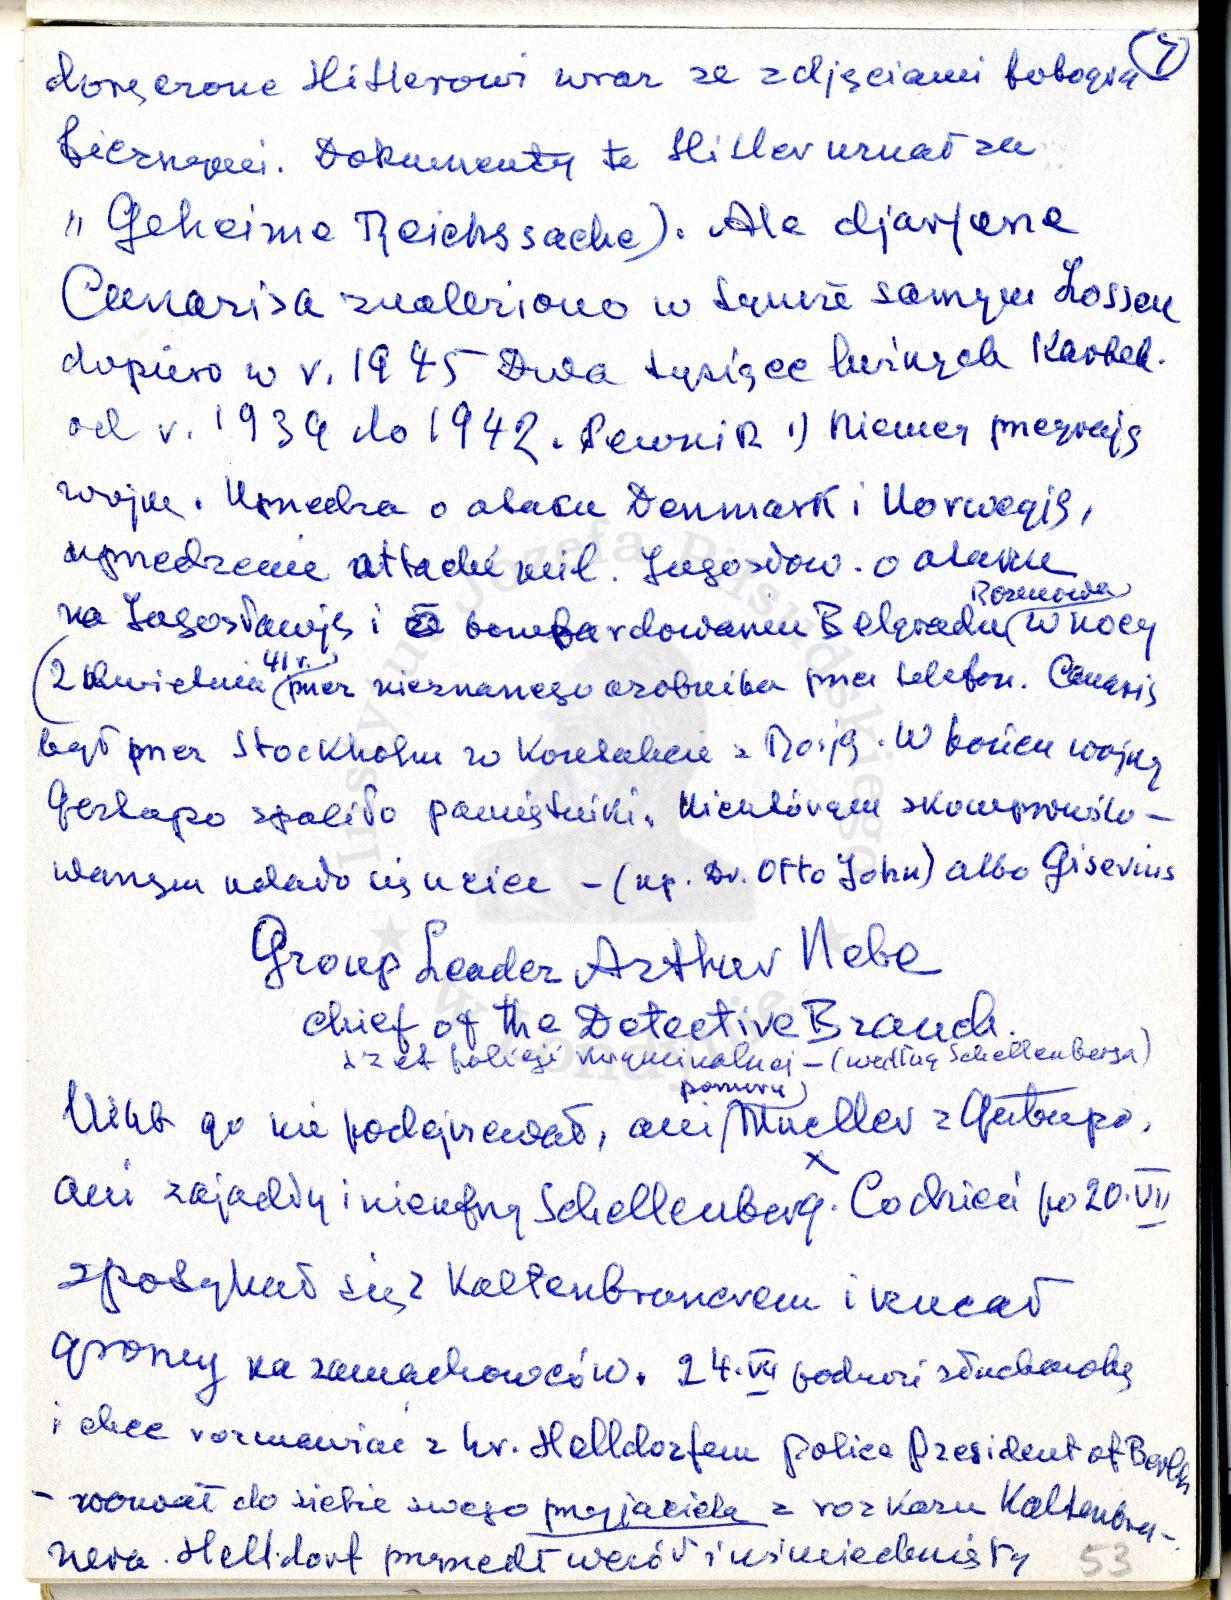 7
doręczone Hitlerowi wraz ze zdjęciami fotogra
ficznymi. Dokumenty te Hitler uznał za
„Geheime Reichssache). Ale djarjusze
Canarisa znaleziono w tymże samym Zossen
dopiero w r. 1945 Dwa tysiące luźnych Kartek.
od r. 1939 do 1942. Pewnik 1) Niemcy przegrają
wojnę. Uprzedza o ataku Denmark i Norwegię,
uprzedzenie attaché mil. Jugosłow. o ataku
na Jugosławję i o bombardowaniu Belgradu (w nocy
Rozmowa
(2 Kwietnia 41 r. przez nieznanego osobnika przez telefon. Canaris
był przez Stockholm w Kontakcie z Rosją. W końcu wojny
Gestapo spaliło pamiętniki. Niektórym skompromito-
wanym udało się uciec - (np. Dr. Otto John) albo Gisevius
Group Leader Arthur Nebe
chief of the Detective Branch.
szef policji kryminalnej - (według Schellenberga)
Nikt go nie podejrzewał, ani ponury Mueller z Gestapo,
ani zajadły i nieufny Schellenberg. Codzień po 20.VII
x
spotykał się z Kaltenbrunerem i rzucał
gromy na zamachowców. 24.VII podnosi słuchawkę
i chce rozmawiać z hr. Helldorfem police President of Berlin
- wezwał do siebie swego przyjaciela z rozkazu Kaltenbru-
nera. Helldorf przyszedł wesół i uśmiechnięty
53
Instytut Józefa Piłsudskiego
w Londynie